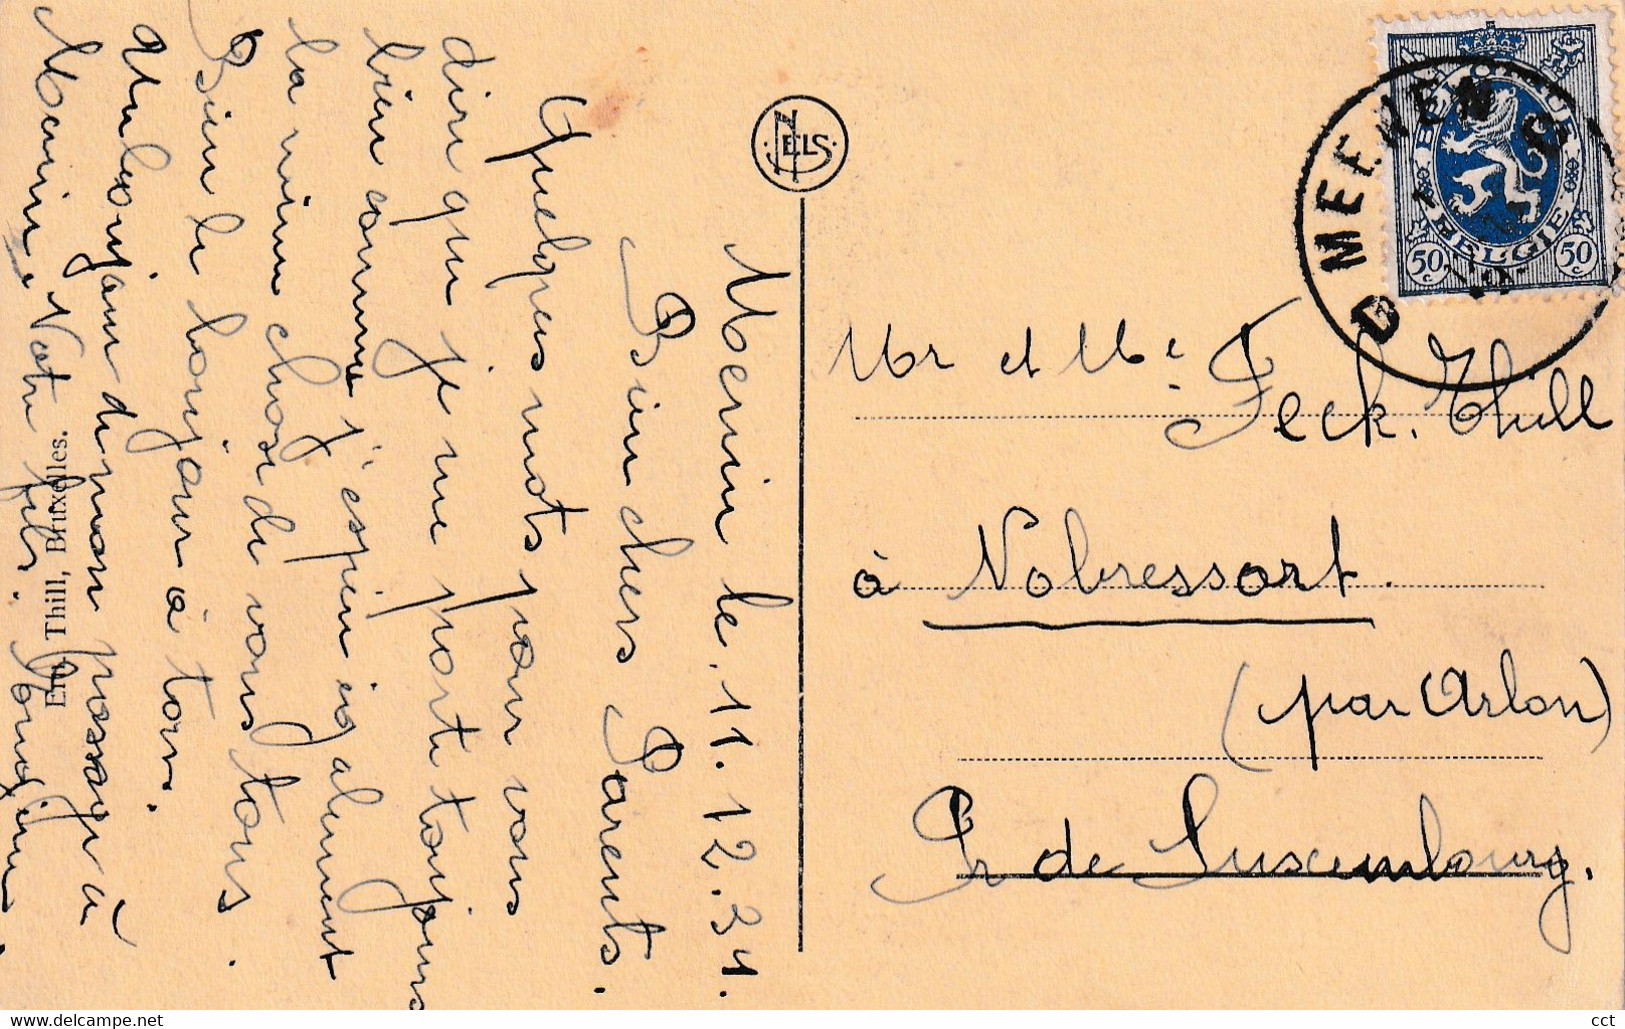 Menin le. 11.12.31.
Bien chers Parents.
Quelques mots pour vous
dire que je me porte toujours
bien comme j'espère également
la même chose de vous tous.
Bien le bonjour à tous.
Un bonjour de mon passage à
Menin. Votre fils.
NELS
Ern. Thill, Bruxelles.
MEENEN
D
BELGIQUE
BELGIE
50 c
50 c
Mr et Me Feck. Thill
à Nobressart.
(par Arlon)
Pr de Luxembourg.
www.delcampe.net
cct